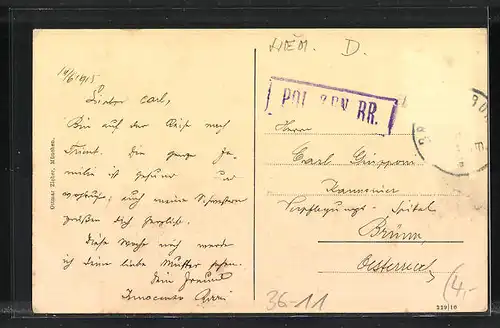 14/6 1915
Lieber Carl,
Bin auf der Reise nach
Trient. Die ganze Fa-
milie ist gesund und
auch meine Schwestern
grüßen dich herzlich.
Diese Woche noch werde
ich deine liebe Mutter sehen.
Dein Freund
Innocente
Ottmar Zieher, München.
D.
BR.
Herrn
Carl
Kanonier
Verpflegungs-Spital
Brünn,
Oesterreich
36-11
4,-